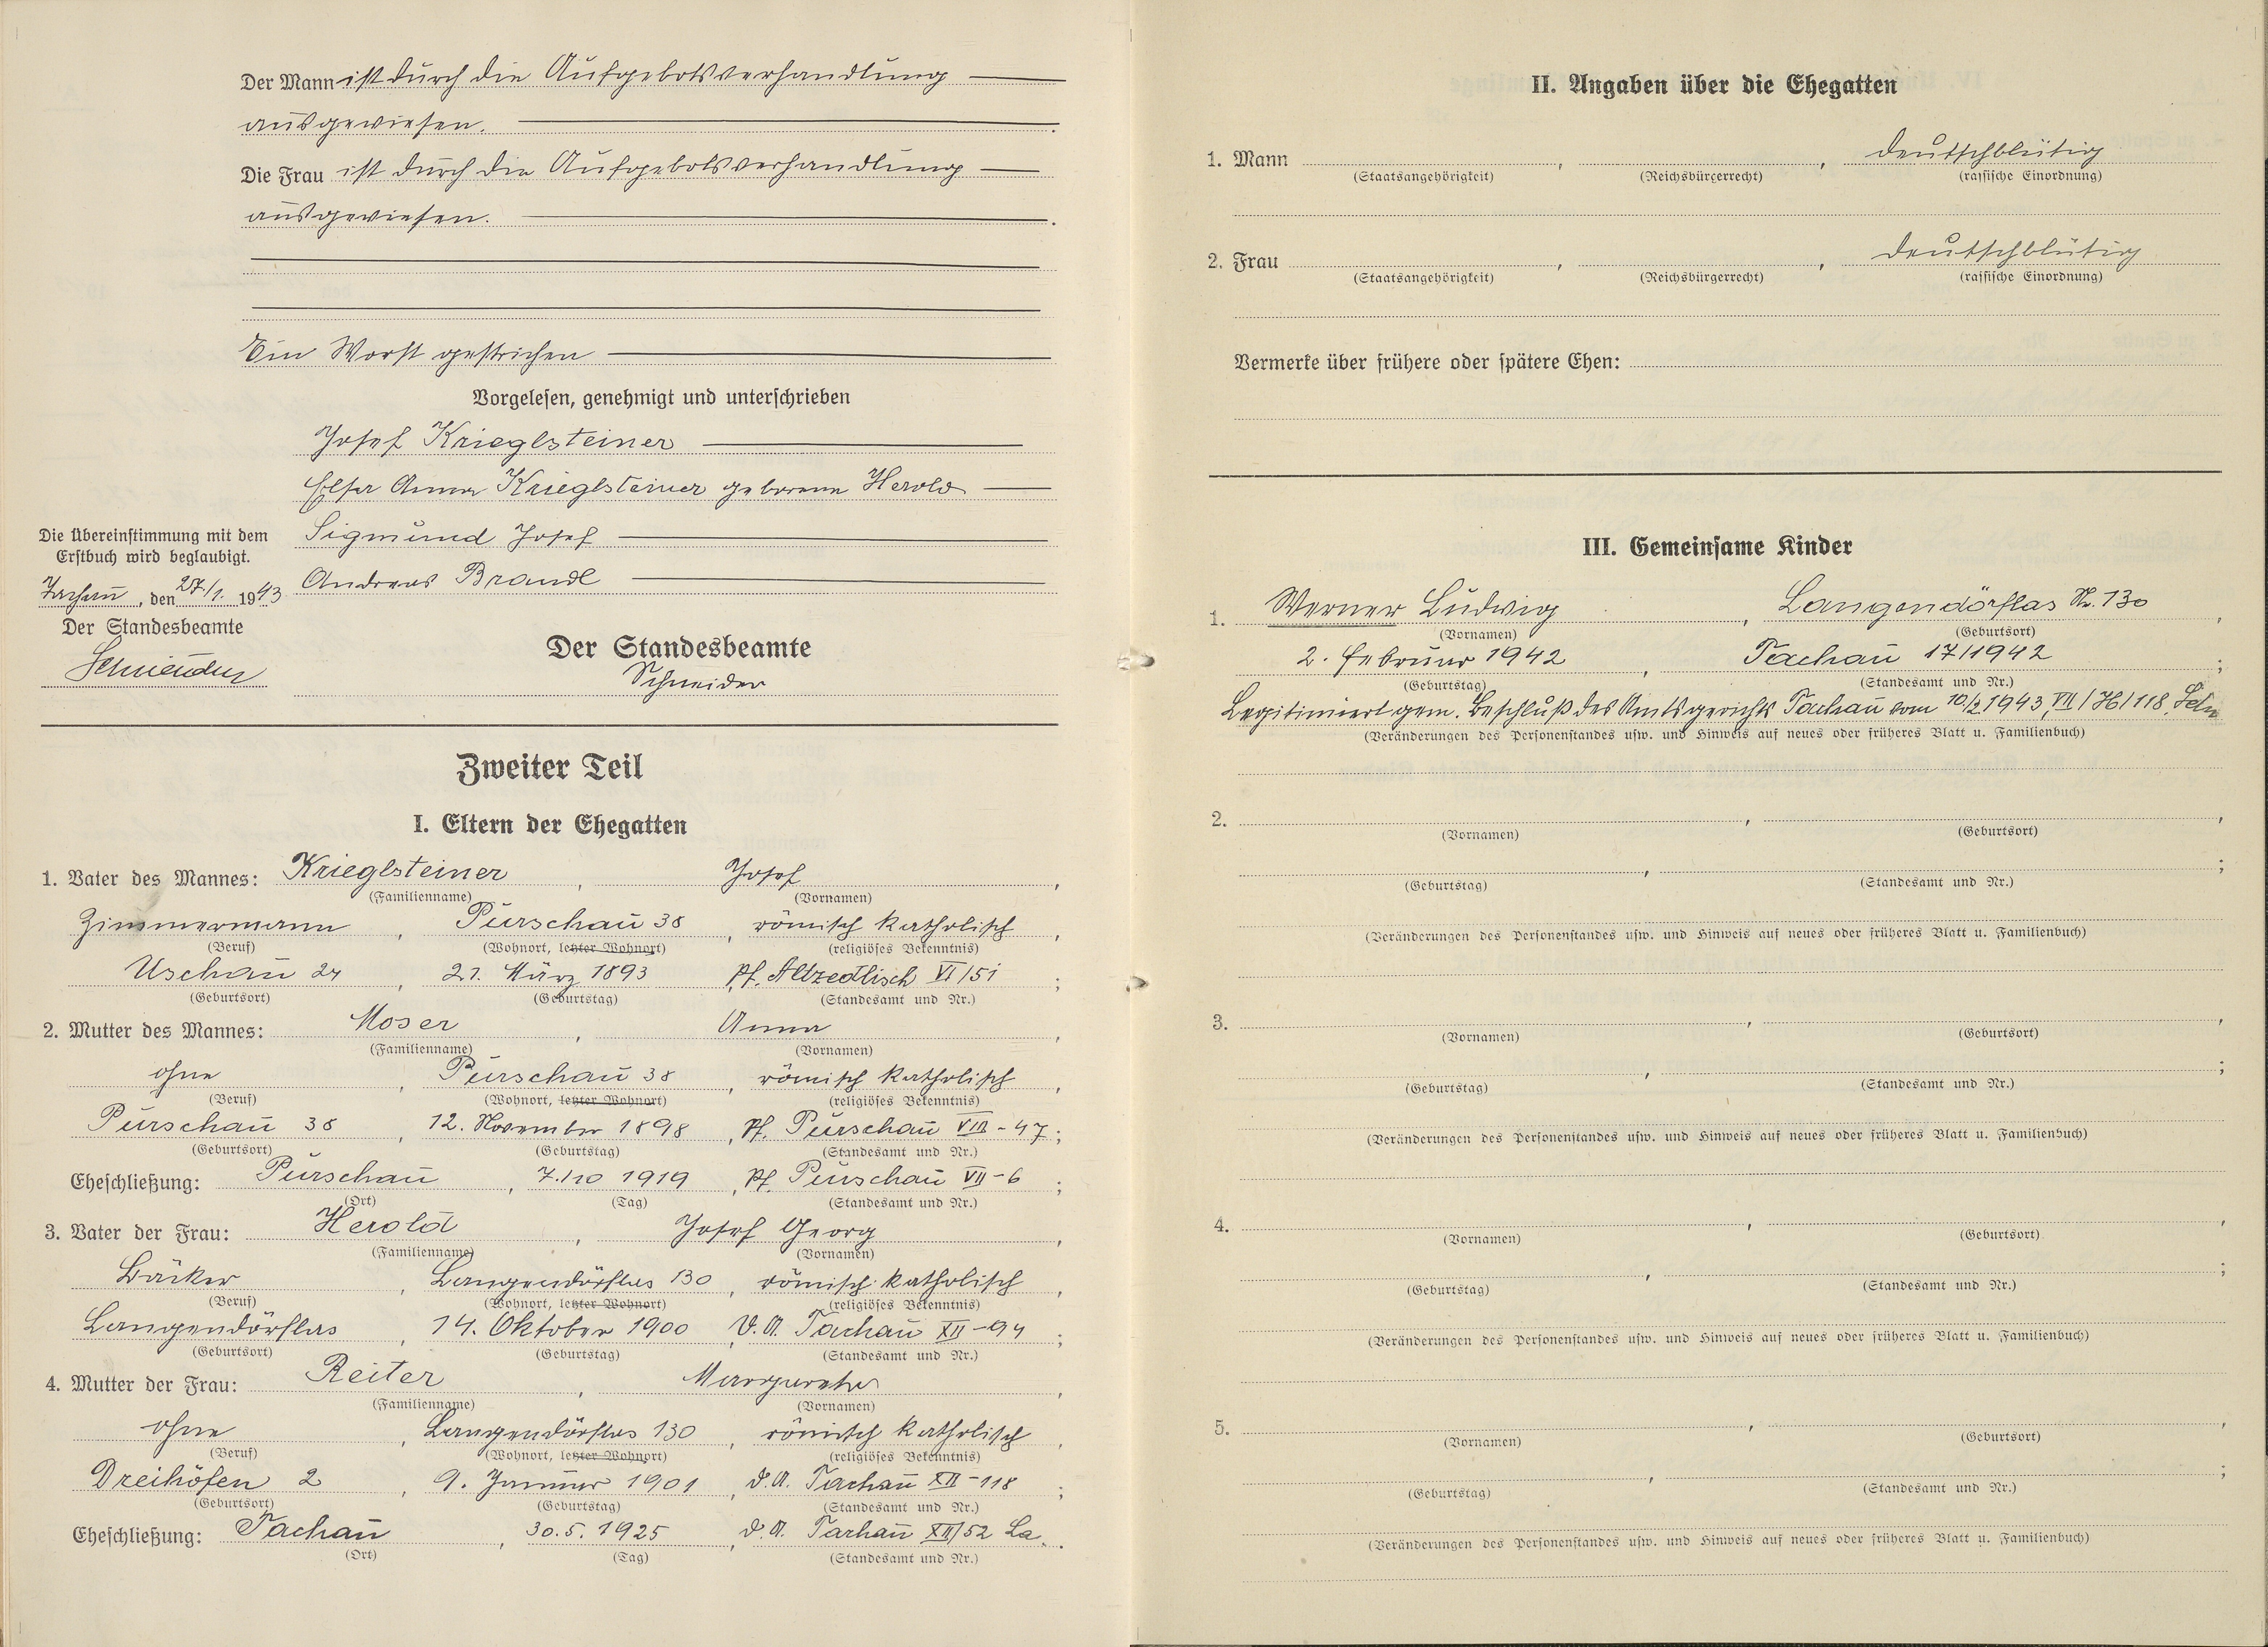 Der Mann ist durch die Aufgebotsverhandlung
ausgewiesen.
Die Frau ist durch die Aufgebotsverhandlung
ausgewiesen.
Ein Wort gestrichen
Vorgelesen, genehmigt und unterschrieben
Josef Krieglsteiner
Elsa Anna Krieglsteiner geborene Herold
Sigmund Josef
Andreas Brandl
Die Übereinstimmung mit dem
Erstbuch wird beglaubigt.
Tachau, den 27/1. 1943
Der Standesbeamte
Schneider
Der Standesbeamte
Schneider
Zweiter Teil
I. Eltern der Ehegatten
1. Vater des Mannes: Krieglsteiner, Josef,
(Familienname) (Vornamen)
Zimmermann, Purschau 38, römisch katholisch,
(Beruf) (Wohnort, letzter Wohnort) (religiöses Bekenntnis)
Uschau 24, 21. März 1893 Pf. Altzedlisch VI/51;
(Geburtsort) (Geburtstag) (Standesamt und Nr.)
2. Mutter des Mannes: Moser, Anna,
(Familienname) (Vornamen)
ohne, Purschau 38, römisch katholisch,
(Beruf) (Wohnort, letzter Wohnort) (religiöses Bekenntnis)
Purschau 38, 12. November 1898, Pf. Purschau VIII-47;
(Geburtsort) (Geburtstag) (Standesamt und Nr.)
Eheschließung: Purschau, 7./10 1919, Pf. Purschau VII-6;
(Ort) (Tag) (Standesamt und Nr.)
3. Vater der Frau: Herold, Josef Georg,
(Familienname) (Vornamen)
Bäcker, Langendörflas 130, römisch katholisch,
(Beruf) (Wohnort, letzter Wohnort) (religiöses Bekenntnis)
Langendörflas, 14. Oktober 1900 D.A. Tachau XII-94;
(Geburtsort) (Geburtstag) (Standesamt und Nr.)
4. Mutter der Frau: Reiter, Margareta,
(Familienname) (Vornamen)
ohne, Langendörflas 130, römisch katholisch,
(Beruf) (Wohnort, letzter Wohnort) (religiöses Bekenntnis)
Dreihöfen 2, 9. Januar 1901, D.A. Tachau XII-118;
(Geburtsort) (Geburtstag) (Standesamt und Nr.)
Eheschließung: Tachau, 30.5.1925, D.A. Tachau XII/52 La.
(Ort) (Tag) (Standesamt und Nr.)
II. Angaben über die Ehegatten
1. Mann , , deutschblütig
(Staatsangehörigkeit) (Reichsbürgerrecht) (rassische Einordnung)
2. Frau , , deutschblütig
(Staatsangehörigkeit) (Reichsbürgerrecht) (rassische Einordnung)
Vermerke über frühere oder spätere Ehen:
III. Gemeinsame Kinder
1. Werner Ludwig, Langendörflas Nr. 130,
(Vornamen) (Geburtsort)
2. Februar 1942, Tachau 17/1942;
(Geburtstag) (Standesamt und Nr.)
Legitimiert gem. Beschluß des Amtsgerichts Tachau vom 10./2 1943, VII/H/118.
(Veränderungen des Personenstandes usw. und Hinweis auf neues oder früheres Blatt u. Familienbuch)
2. , ,
(Vornamen) (Geburtsort)
, ;
(Geburtstag) (Standesamt und Nr.)
(Veränderungen des Personenstandes usw. und Hinweis auf neues oder früheres Blatt u. Familienbuch)
3. , ,
(Vornamen) (Geburtsort)
, ;
(Geburtstag) (Standesamt und Nr.)
(Veränderungen des Personenstandes usw. und Hinweis auf neues oder früheres Blatt u. Familienbuch)
4. , ,
(Vornamen) (Geburtsort)
, ;
(Geburtstag) (Standesamt und Nr.)
(Veränderungen des Personenstandes usw. und Hinweis auf neues oder früheres Blatt u. Familienbuch)
5. , ,
(Vornamen) (Geburtsort)
, ;
(Geburtstag) (Standesamt und Nr.)
(Veränderungen des Personenstandes usw. und Hinweis auf neues oder früheres Blatt u. Familienbuch)